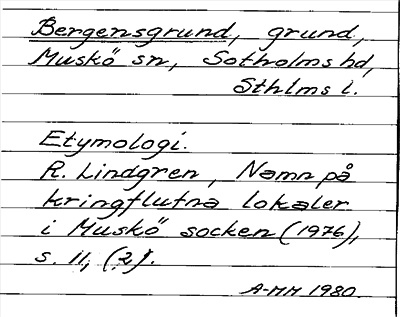 Bergensgrund, grund,
Muskö sn, Sotholms hd,
Sthlms l.
Etymologi.
R. Lindgren, Namn på
kringflutna lokaler
i Muskö socken (1976),
s. 11, (2).
A-MH 1980.